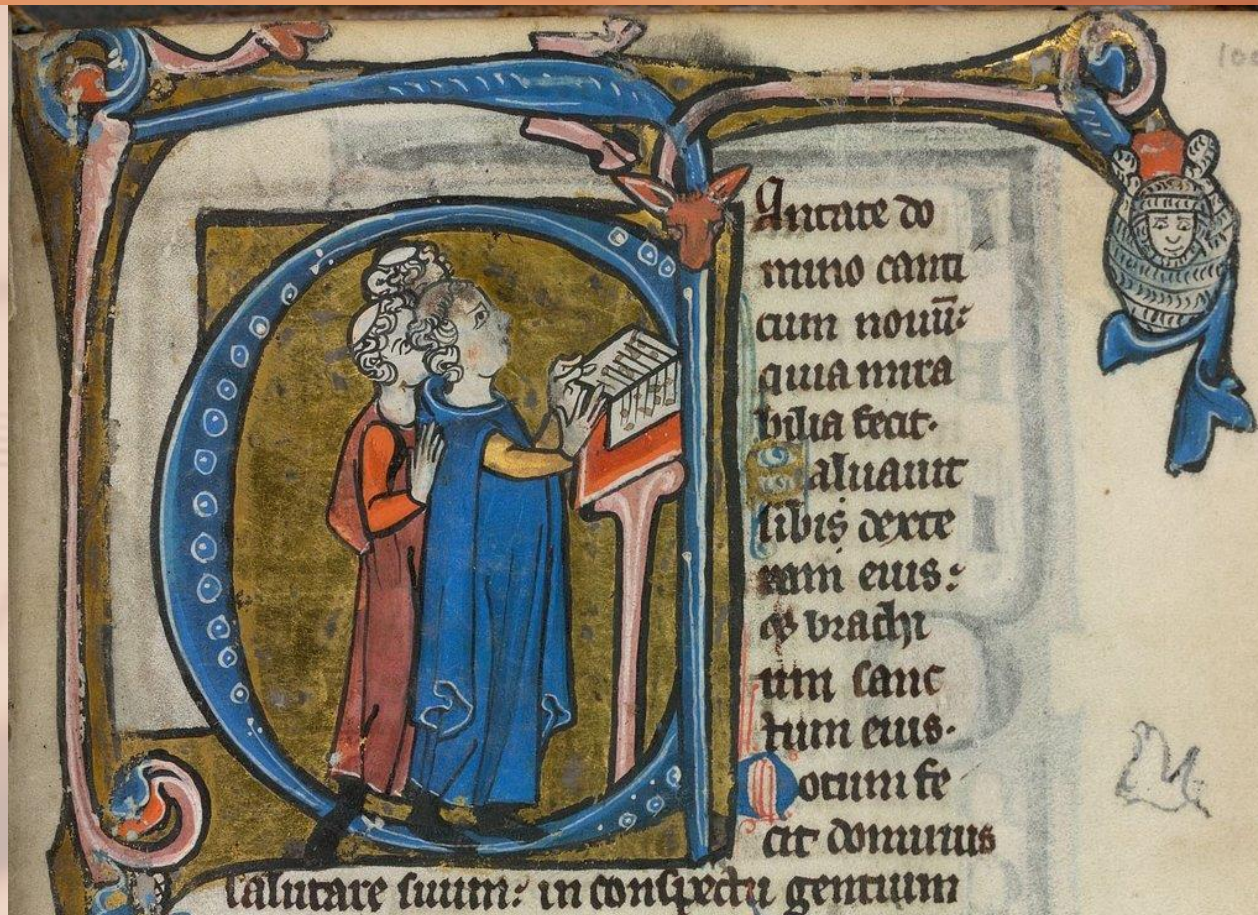 CAntate do
mino canti
cum nouū:
quia mira
bilia fecit.
Saluauit
sibi dexte
ram eius:
& brachi
um sanc
tum eius.
Notum fe
cit dominus
salutare suum: in conspectu gentium